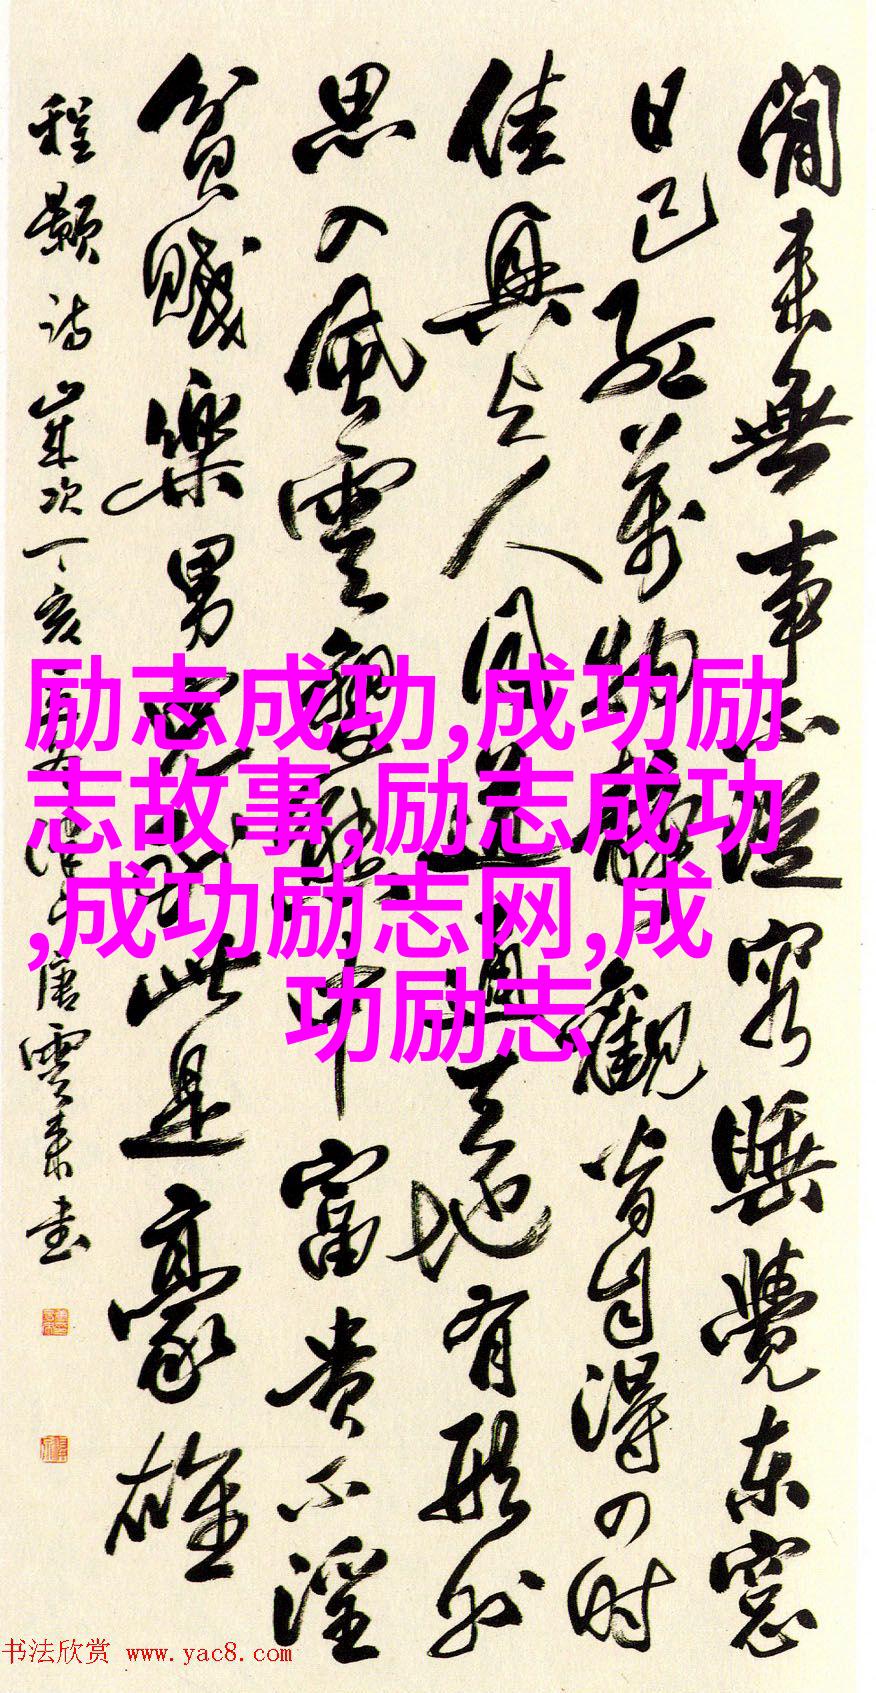 閒来無事不從容睡覺东窓
日已红萬物静觀皆自得四时
佳興与人同道通天地有形外
思入風雲變態中富贵不淫
貧賤樂男兒到此是豪雄
程颢诗歲次丁亥唐雲来書
励志成功,成功励
志故事,励志成功
,成功励志网,成
功励志
书法欣赏 www.yac8.com